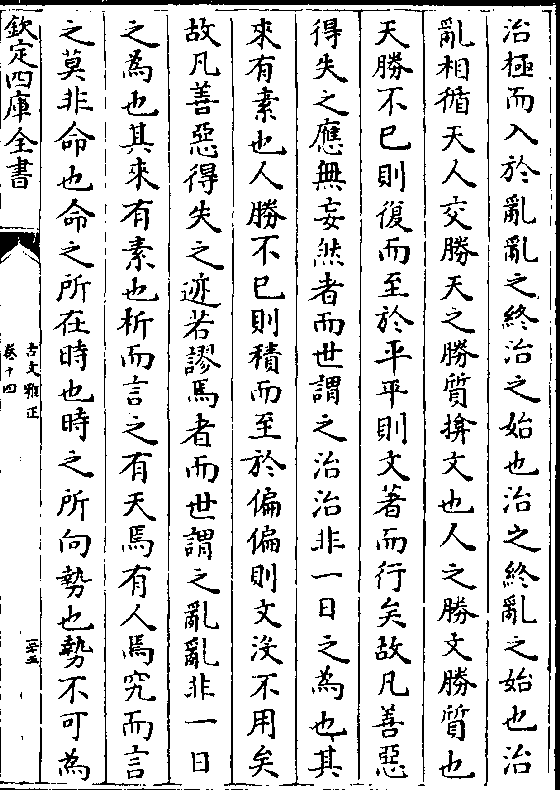 治極而入於亂亂之終治之始也治之終亂之始也治
亂相循天人交勝天之勝質揜文也人之勝文勝質也
天勝不已則復而至於平平則文著而行矣故凡善惡
得失之應無妄然者而世謂之治治非一日之為也其
來有素也人勝不已則積而至於偏偏則文没不用矣
故凡善惡得失之迹若謬焉者而世謂之亂亂非一日
之為也其來有素也析而言之有天焉有人焉究而言
之莫非命也命之所在時也時之所向勢也勢不可為
欽定四庫全書
古文雅正
卷十四